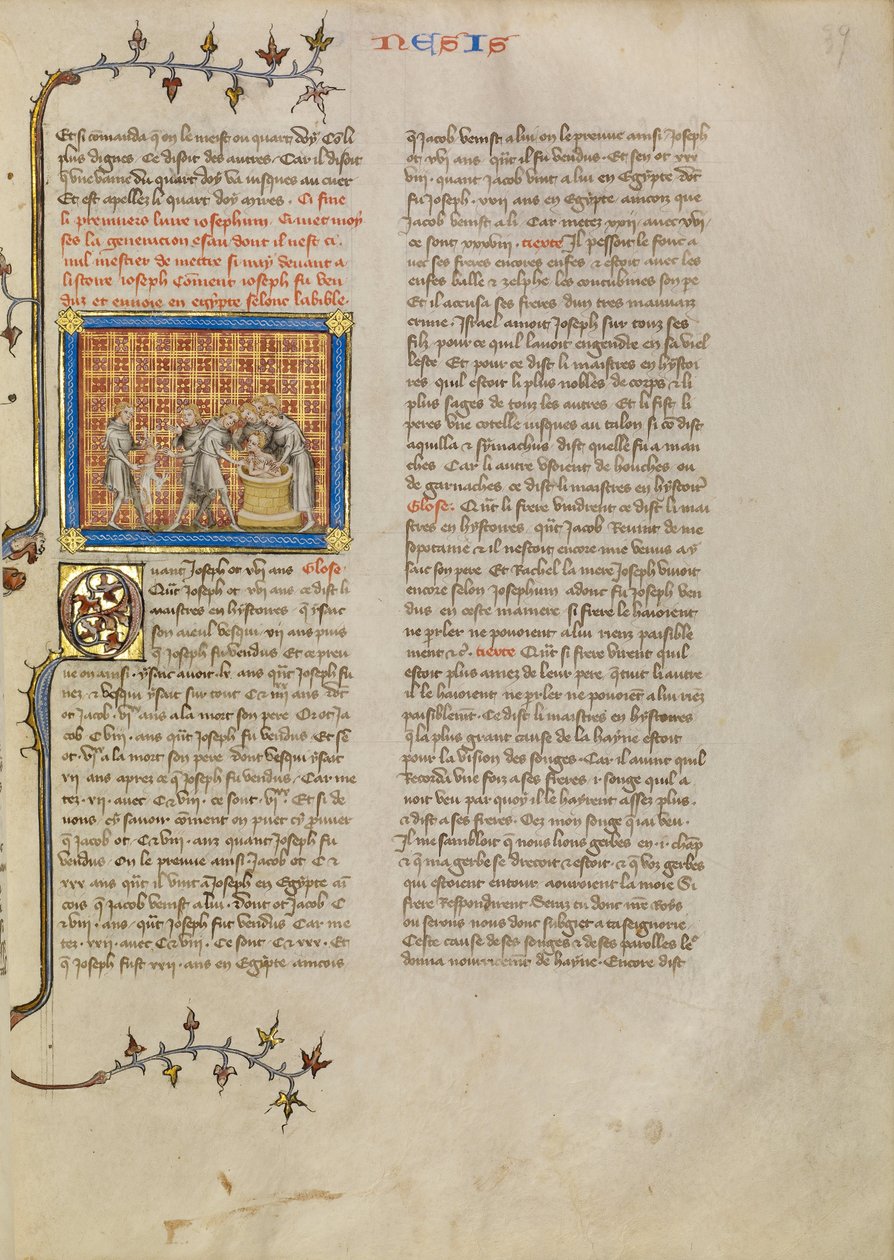 NESIS
39
Et si cōmanda q̄ on le meist ou quart doy. Cō li
plus dignes. Ce disoit des autres. Car il disoit
q̄ vne vaine du quart doy va iusques au cuer
Et est apellez li quart doy mires. Ci fine
li premiers liure iosephum. Ci met moy
ses la generation esau dont il nest ci.
nul mestier de mettre si may deuant a
listoire ioseph Cōment ioseph fu ven
duz et enuoie en egypte selonc la bible.
Quant Joseph ot xvij ans Glose
Qūt Joseph ot xvij ans ce dist li
maistres en hystoires q̄ ysaac
son aieul vesqui xii ans puis
q̄ Joseph fu vendus Et ce preu
ue on ainsi. ysaac auoit lx ans qūt Joseph fu
nez, & vesqui ysaac sur tout C & iiijxx ans dōt
ot Jacob vjxx ans a la mort son pere Or ot Ja
cob C viii ans qūt Joseph fu vendus Et sē
ot vjxx a la mort son pere dont vesqui ysaac
xii ans aprez ce q̄ Joseph fu vendus. Car me
tez xii auec C & viii ce sont vjxx. Et si de
uons cy sauoir cōment on puet cy prouuer
q̄ Jacob ot C & viii anz quant Joseph fu
vendus. On le preuue ainsi Jacob ot C &
xxx ans qūt il vint a Joseph en Egypte ai
cois q̄ Jacob venist a lui. Dont ot Jacob C
& viii ans qūt Joseph fut vendus Car me
tez xxii auec C & viii. Ce sont C & xxx. Et
q̄ Joseph fust xxii ans en Egipte aincois
q̄ Jacob venist a lui on le preuue ainsi Joseph
ot xvj ans qūt il fu vendus. Et sen ot xxx
viii quant Jacob vint a lui en Egypte dōt
fu Joseph xxii ans en Egypte aincoiz que
Jacob venist a li. Car metez xxii auec xvj
ce sont xxxviii tiexte Il pessoit le fouc a
uec ses freres encores enfes & estoit auec les
enfes balle & zelphe les concubines son pe
Et il accusa ses freres dun tres mauuaiz
crime. Israel amoit Joseph sur touz ses
filz pour ce quil lauoit engendre en sa viel
lesce. Et pour ce dist li maistres en hystoi
res quil estoit li plus nobles de corps & li
plus sages de touz les autres. Et li fist li
peres vne cotelle iusques au talon si cō dist
aquilla & symachus dist quelle fu a man
ches. Car li autre vsoient de houches ou
de garnaches ce dist li maistres en hystoir
Glose. Qūt li frere vindrent ce dist li mai
stres en hystoires qūt Jacob Reuint de me
sopotanie & il nestoit encore mie venus a y
saac son pere Et Rachel la mere Joseph viuoit
encore selon Josephum adonc fu Joseph ven
dus en ceste maniere si frere le haioient
ne p̄rler ne pouoient a lui riens paisible
ment &c. tiexte Qūt si frere virent quil
estoit plus amez de leur pere q̄ tuit li autre
il le haioient ne p̄rler ne pouoiēt a lui riez
paisiblemt. Ce dist li maistres en hystoires
q̄ la plus grant cause de la hayne estoit
pour la vision des songes. Car il auint quil
Recorda vne foiz a ses freres .i. songe quil a
uoit veu par quoy il le hayrent assez plus.
& dist a ses freres. Oez mon songe q̄ iai veu.
Il me sambloit q̄ nous lions gerbes en .i. chāp
& q̄ ma gerbe se drecoit & estoit & q̄ voz gerbes
qui estoient entour aouroient la moie Si
frere Respondirent Seras tu dont nrē Roys
ou serons nous dont subgiet a ta seignorie
Ceste cause de ses songes & de ses parolles leʳ
donna nourricemt de hayne. Encore dist